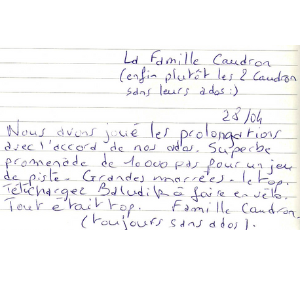 La Famille Caudron
(enfin plutôt les 2 Caudron
sans leurs ados :)
28/04
Nous avons joué les prolongations
avec l'accord de nos ados. Superbe
promenade de 10000 pas pour un jeu
de piste. Grandes marrées. le top.
Téléchargez Baludik à faire en vélo.
Tout était top. Famille Caudron.
(toujours sans ados).